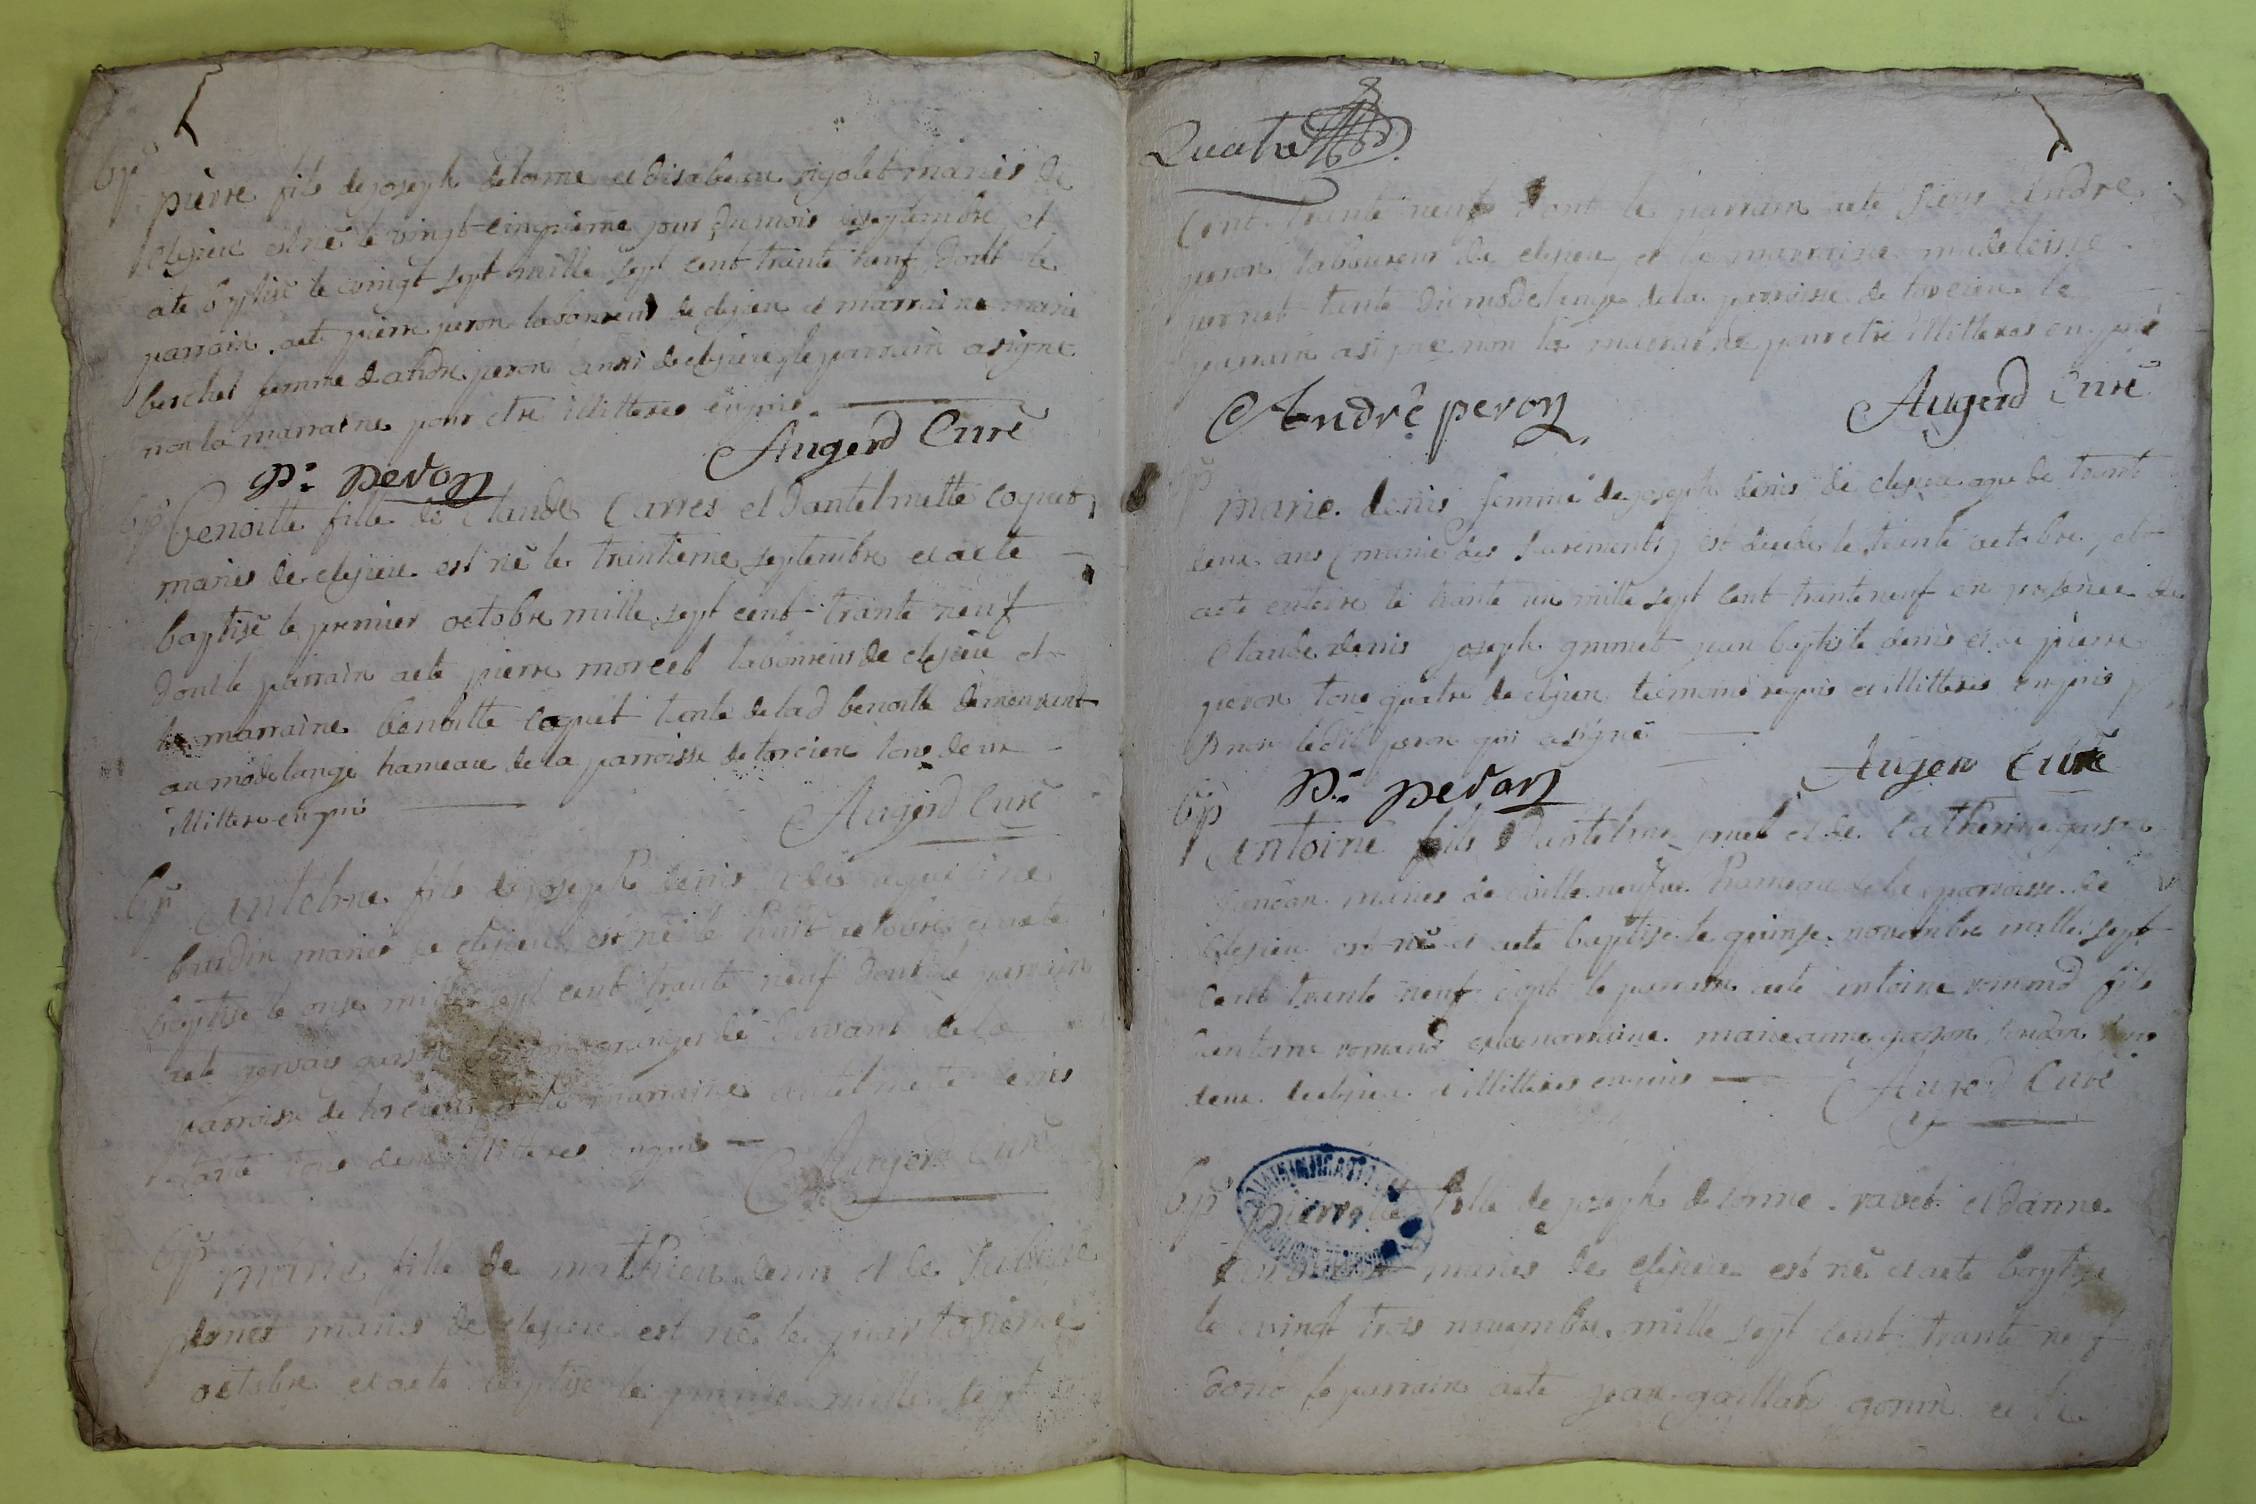 bp
pierre fils de joseph delorme et disabeau rigolet mariés de
clesieu est né le vingt-cinquieme jour du mois de septembre et
a eté baptisé le vingt sept mille sept cent trante neuf dont le
parrain a eté pierre peron laboureur de clesieu et marraine marie
berchet femme dandre peron aussi de clesieu le parrain a signé
non la marraine pour etre illitteres enquis
Augerd Curé
P: peron
bp
benoitte fille de Claude Carres et dantelmette coquet
mariés de clesieu est né le trentieme septembre et a eté
baptisé le premier octobre mille sept cent trante neuf
dont le parrain a eté pierre morcel laboureur de clesieu et
la marraine benoitte coquet tente de lad benoitte demeurant
au mas de lange hameau de la parroisse de torcieu tous deux
illitteres enquis
Augerd Curé
bp
Antelme fils de joseph denis
burdin mariés de clesieu est né le huit octobre et a eté
baptisé le onze mille sept cent trante neuf dont le parrain
a eté gervais de la
parroisse de torcieu et la marraine antelmette denis
tous deux illitteres enquis
Augerd Curé
bp
marie fille de mathieu denis et de
mariés de clesieu est né le quatorsieme
octobre et a eté baptisé le mille sept
Quatre
Cent trante neuf dont le parrain a eté sieur andre
peron laboureur de clesieu et la marraine
pernet tente du mas de lange de la parroisse de torcieu le
parrain a signé non la marraine pour etre illitteres enquis
André peron
Augerd Curé
marie denis femme de joseph denis de clesieu age de trent
deux ans (munie des sacrements) est decedé le trente octobre et
a eté enterre le trante un mille sept cent trante neuf en presence de
Claude denis joseph grumet jean baptiste denis et de pierre
peron tous quatre de clesieu temoins requis et illitteres enquis
sinon ledit peron qui a signé
Augerd Curé
P: peron
bp
antoine fils dantelme et de Catherine
mariés de villeneufve hameau de la parroisse de
clesieu est né et a eté baptisé le quinse novembre mille sept
cent trante neuf dont le parrain a eté antoine romand fils
dantoine romand et la marraine marie anne
deux de clesieu illitteres enquis
Augerd Curé
bp
pierrette fille de joseph delorme ravet et danne
mariés de clesieu est né et a eté baptisé
le vingt trois novembre mille sept cent trante neuf
dont le parrain a eté jean gaillard gonin et la